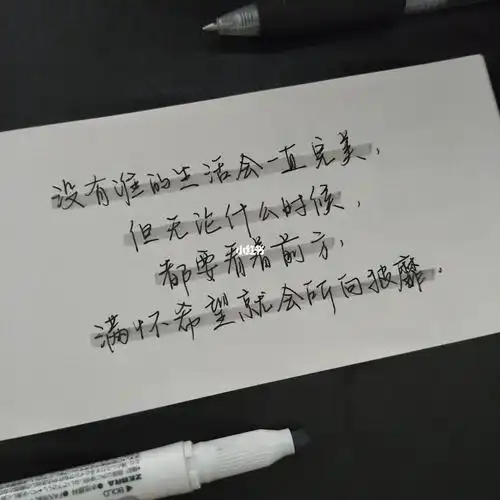 没有谁的生活会一直完美，
但无论什么时候，
小红书
都要看着前方，
满怀希望就会所向披靡．
BOLD
ZEBRA